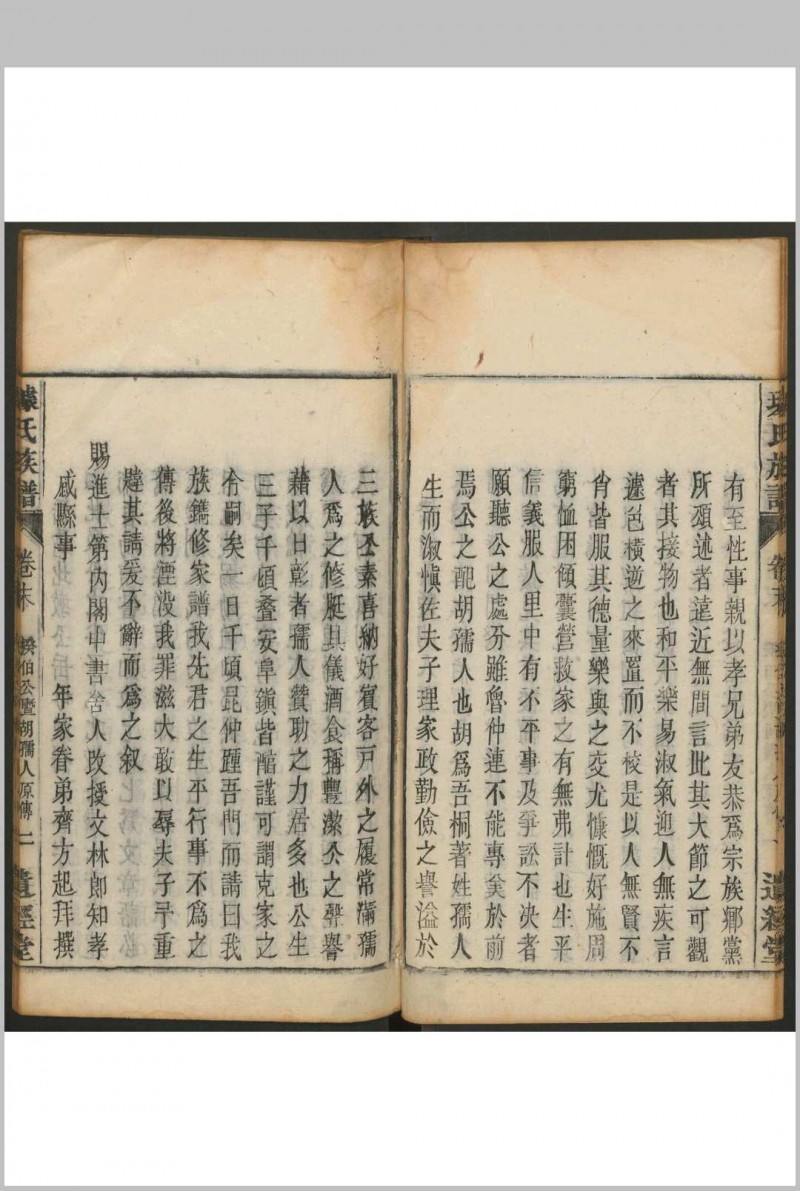 有至性事親以孝兄弟友恭爲宗族鄉黨
所頌述者遠近無間言此其大節之可觀
者其接物也和平樂易淑氣迎人無疾言
遽色橫逆之來置而不校是以人無賢不
肖皆服其德量樂與之交尤慷慨好施周
窮恤困傾囊營救家之有無弗計也生平
信義服人里中有不平事及爭訟不决者
願聽公之處分雖魯仲連不能專美於前
焉公之配胡孺人也胡爲吾桐著姓孺人
生而淑愼佐夫子理家政勤儉之譽溢於
三族公素喜納好賓客戸外之屨常滿孺
人爲之修艇具儀酒食稱豐潔公之聲譽
藉以日彰者孺人贊助之力居多也公生
三子千頃叠安阜鎭皆醕謹可謂克家之
令嗣矣一日千頃昆仲踵吾門而請曰我
族鐫修家譜我先君之生平行事不爲之
傳後將湮没我罪滋大敢以辱夫子予重
違其請爰不辭而爲之叙
賜進士第内閣中書舍人改授文林郎知孝
感縣事
年家眷弟齊方起拜撰
氏族譜 卷末 揆伯公曁胡孺人原傳 二 遺經堂
氏族譜 卷末 遺經堂